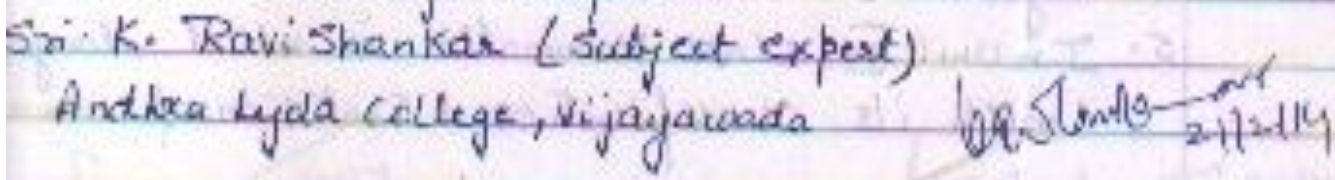 Sri. K. Ravi Shankar (Subject expert)
Andhra Lyola College, Vijayawada 21/2/14